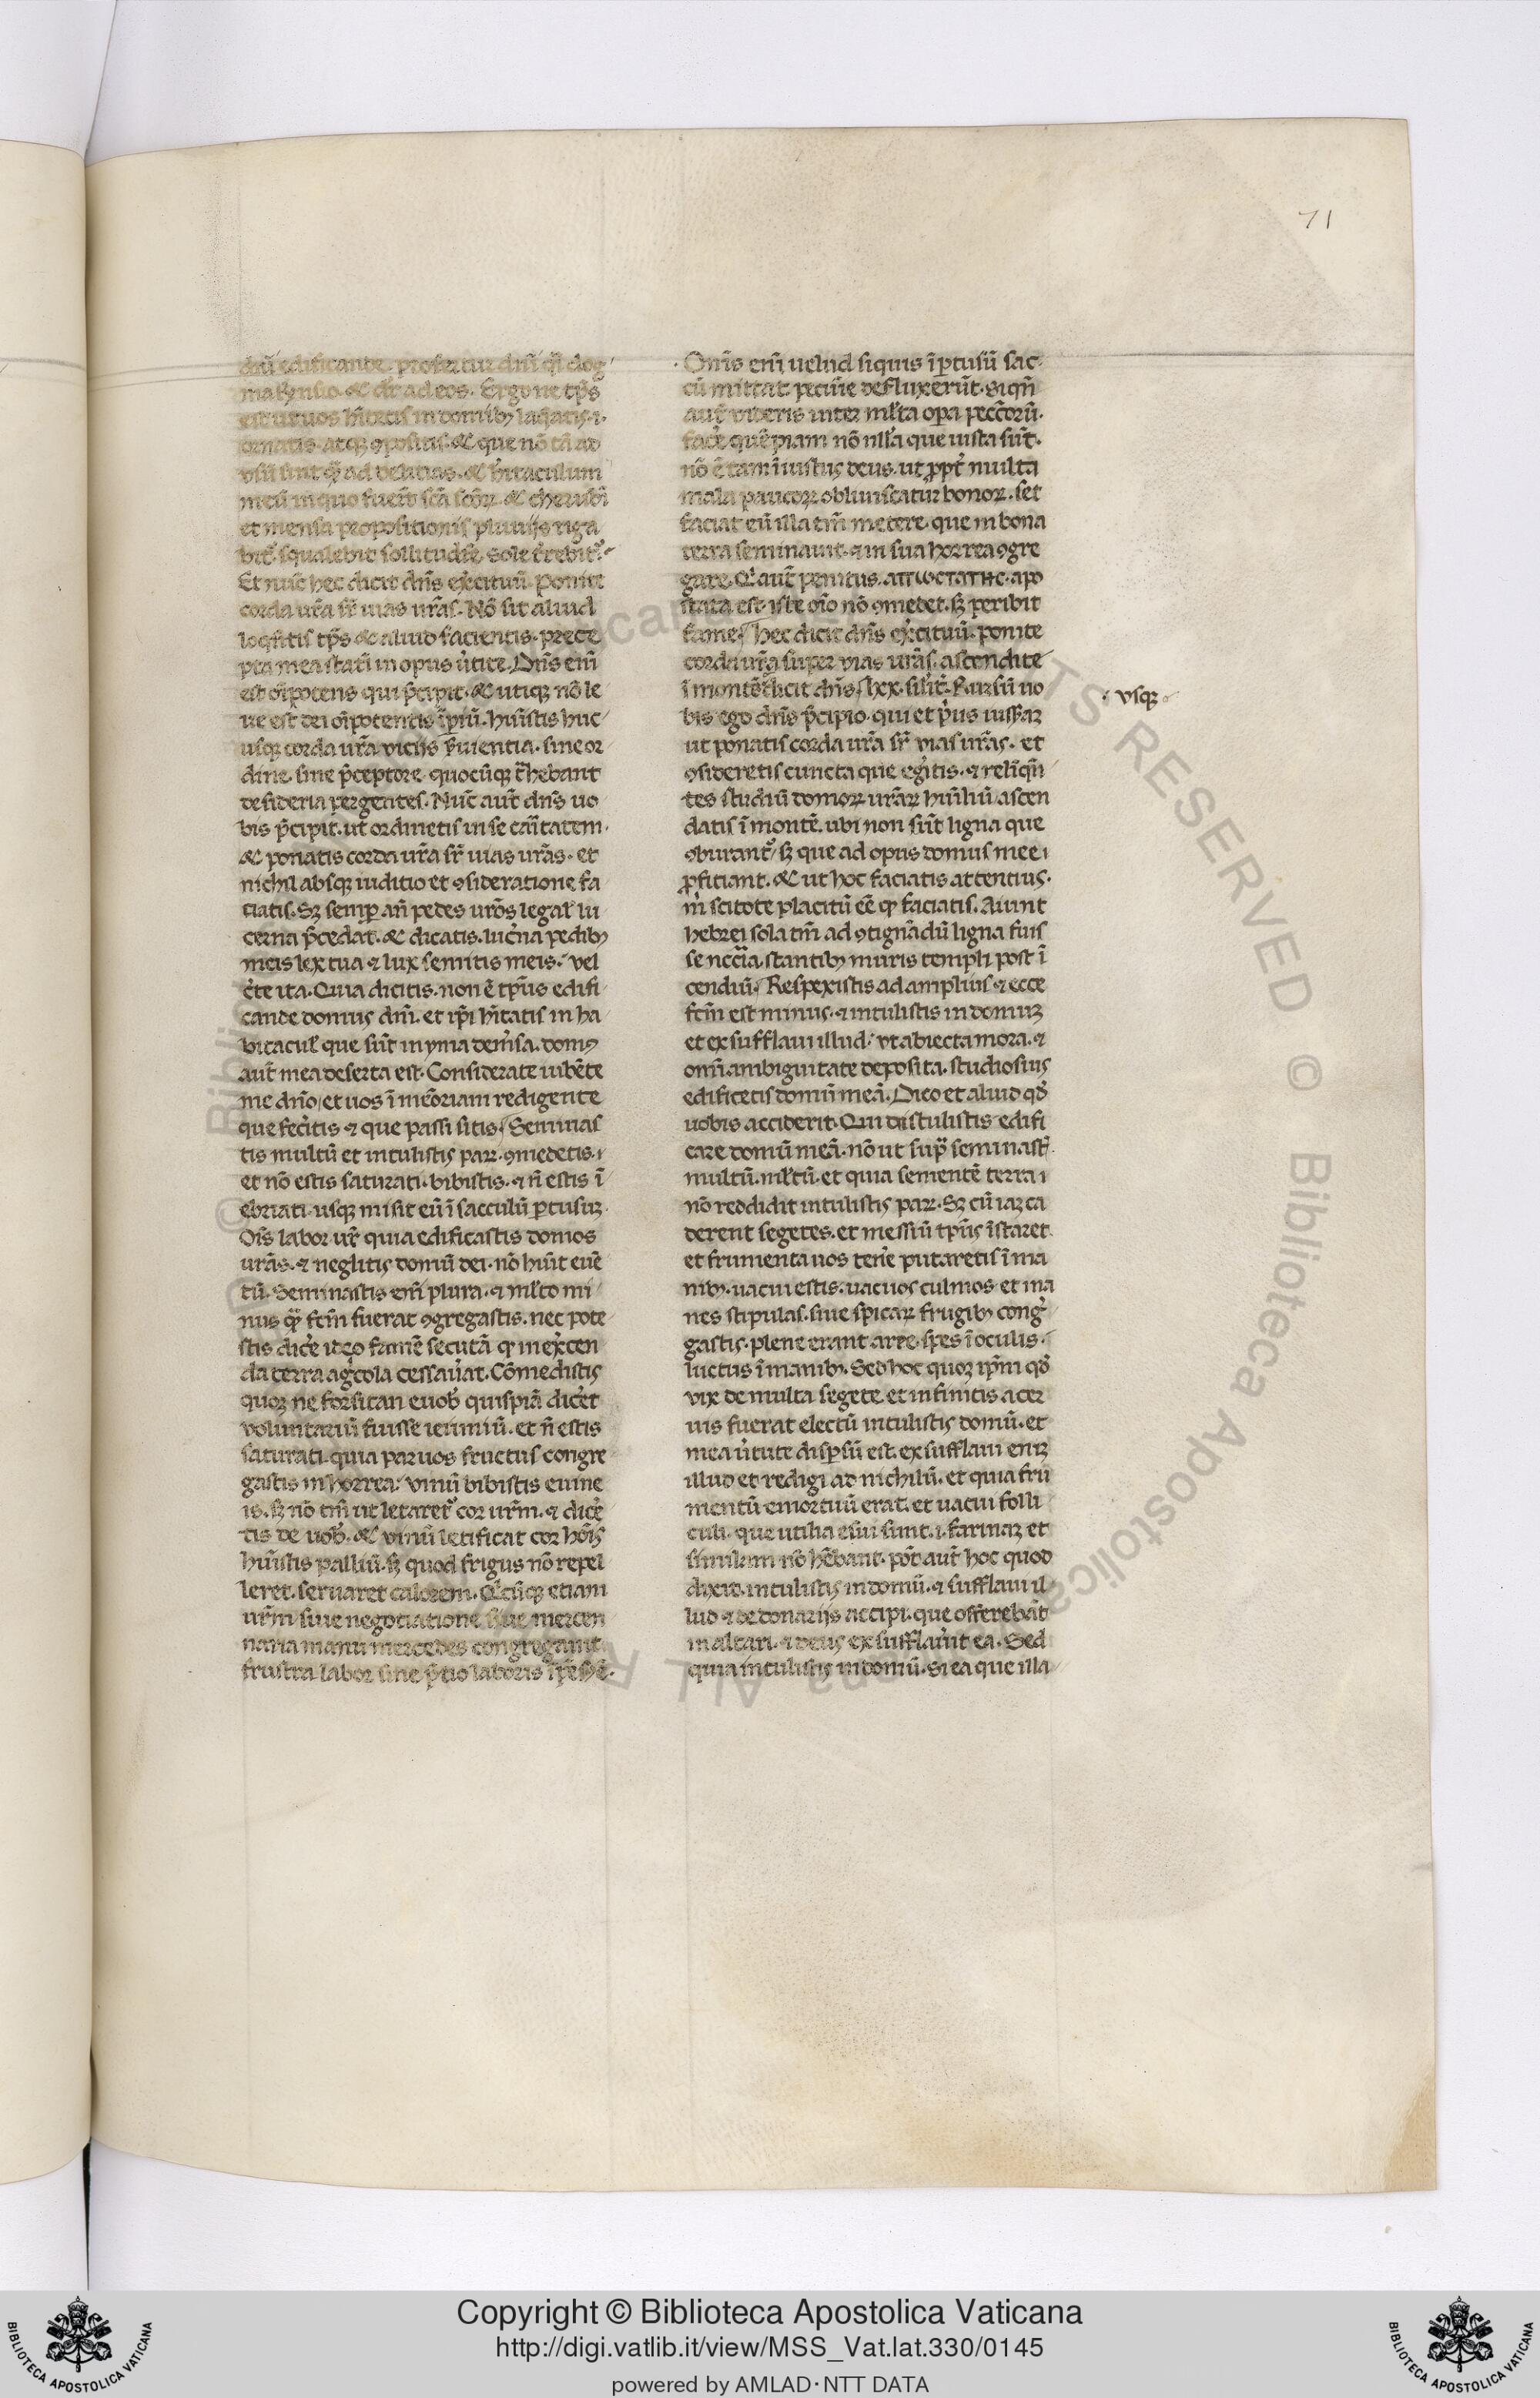 71
dn̄i edificante. profertur dn̄i q̄i dog
ma et dr̄ ad eos. Ergo ne tp̄s
est ut uos hītetis in domibꝫ laq̄atis. i.
ornatis. atqꝫ ꝯpositis. & que nō tā ad
usū sint qꝫ ad delitias. & hītaculum
meū in quo fuer̄t scā scōꝝ. & cherubī
et mensa propositionis pluuijs riga
bit᷑. squalebit sollitudīe. sole
Et nūc hec dicit dn̄s ex̄cituū. Ponite
corda ur̄a sr̄ uias ur̄as. Nō sit aliud
loq̄ntis tp̄s & aliud facientis. prece
pta mea statī in opus ūtite. Dn̄s enī
est oīpotens qui p̄cipit. & utiqꝫ nō le
ue est dei oīpotentis īp̄iū. Huīstis huc
usqꝫ corda ur̄a uiciis s̄uientia. sine or
dine. sine p̄ceptore. quocūqꝫ t̄hebant
desideria pergentes. Nūc aut̄ dn̄s uo
bis p̄cipit. ut ordinetis in se caītatem.
& ponatis corda ur̄a sr̄ uias ur̄as. et
nichil absqꝫ iuditio et ꝯsideratione fa
ciatis. Sꝫ semꝑ an̄ pedes ur̄os legal̄ lu
cerna p̄cedat. & dicatis. luc̄na pedibꝫ
meis lex tua ⁊ lux semitis meis. uel
c̄te ita. Quia dicitis. non ē tp̄us edifi
cande domus dn̄i. et ip̄i hītatis in ha
bitacul̄ que sūt in yma dem̄sa. domꝰ
aut̄ mea deserta est. Considerate iubēte
me dn̄o. et uos ī mēoriam redigente
que fec̄itis ⁊ que passi sitis. Seminas
tis multū et intulistis paꝝ. ꝯmedetis.
et nō estis saturati. bibistis. ⁊ n̄ estis ī
ebriati. usqꝫ misit eū ī sacculū ꝑtusuꝫ.
Oīs labor ur̄ quia edificastis domos
ur̄as. ⁊ neglitis domū dei. nō hūit euē
tū. Seminastis enī plura. ⁊ ml̄to mi
nus qꝫ fcm̄ fuerat ꝯgregastis. nec pote
stis dic̄e ideo famē secutā qꝫ in ex̄cen
da terra ag̊cola cessau̾at. Cōmedistis
quoqꝫ ne forsitan euob̄ quispiā dic̄et
voluntariū fuisse ieiuniū. et n̄ estis
saturati. quia paruos fructus congre
gastis in horrea. vinū bibistis euine
is. sꝫ nō tm̄ ut letaret᷑ cor ur̄m. ⁊ dic̄e
tis de uob̄. & vinū letificat cor hōis
huīstis palliū. sꝫ quod frigus nō repel
leret. seruaret calorem. etiam
ur̄m siue negotiatione siue mercen
naria manu mercedes congregauit
frustra labor sine p̄tio laboris
Om̄is enī uelud siquis īꝑtusū sac
cū mittat. pecunie defluxerūt. Siqn̄
aut̄ videris inter ml̄ta opa peccorū.
fac̄e quēpiam nō nlla que iusta sūt.
nō ē tam īiustus deus. ut ꝓpt̄ multa
mala paucoꝝ obliuiscatur bonoꝝ. set
faciat eū illa tm̄ metere. que in bona
terra seminauit. ⁊ in sua horrea ꝯgre
gare. Q̇ aut̄ penitus. ΑΠΟϹΤΑΤΗϹ. apo
stata est. iste oīo nō ꝯmedet. sꝫ peribit
fame. Hec dicit dn̄s ex̄cituū. ponite
corda ur̄a super uias ur̄as. ascendite
ī montē dicit dn̄s. lxx. silit̄. Rursū uo
bis ego dn̄s p̄cipio. qui et p̄us iusseraꝫ
ut ponatis corda ur̄a sr̄ uias ur̄as. et
ꝯsideretis cuncta que eg̊itis. ⁊ relīqn̄
tes studiū domoꝝ ur̄aꝝ huīliū. ascen
datis ī montē. ubi non sūt ligna que
ꝯburant᷑. sꝫ que ad opus domus mee
ꝓficiant. & ut hoc faciatis attentius.
m̄ scitote placitū eē qꝫ faciatis. Aiunt
hebrei sola tm̄ ad ꝯtignādū ligna fuis
se nccīa. stantibꝫ muris templi post ī
cendiū. Respexistis ad amplius ⁊ ecce
fcm̄ est minus. ⁊ intulistis in domuꝫ
et exsufflaui illud. Vt abiecta mora. ⁊
omī ambiguitate deposita. studiosius
edificetis domū meā. Dico et aliud qd̄
uobis acciderit. Qui distulistis edifi
care domū meā. nō ut supᷓ seminast̄
multū. ml̄tū. et quia sementē terra
nō reddidit intulistis paꝝ. Sꝫ cū iaꝫ ca
derent segetes. et messiū tp̄us īstaret.
et frumenta uos ten̄e putaretis ī ma
nibꝫ. uacui estis. uacuos culmos et ina
nes stipulas. siue spicaꝝ frugibꝫ cong̊
gastis. plene erant aree. spes ī oculis.
luctus ī manibꝫ. Sed hoc quoqꝫ ip̄m qd̄
vix de multa segete. et infinitis acer
uis fuerat electū intulistis domū. et
mea u̾tute disꝑsū est. exsufflaui eniꝫ
illud et redigi ad nichilū. et quia fru
mentū emortuū erat. et uacui folli
culi. que utilia esui sunt. i. farinaꝫ et
similam nō hēbant. pōt aut̄ hoc quod
dixit. intulistis in domū. ⁊ sufflaui il
lud ⁊ de donarijs accipi. que offerebāt
in altari. ⁊ deus exsufflau̾it ea. Sed
quia intulistis in domū. Si ea que illa
· vsqꝫ
Copyright © Biblioteca Apostolica Vaticana
http://digi.vatlib.it/view/MSS_Vat.lat.330/0145
powered by AMLAD·NTT DATA
BIBLIOTECA APOSTOLICA VATICANA
BIBLIOTECA APOSTOLICA VATICANA